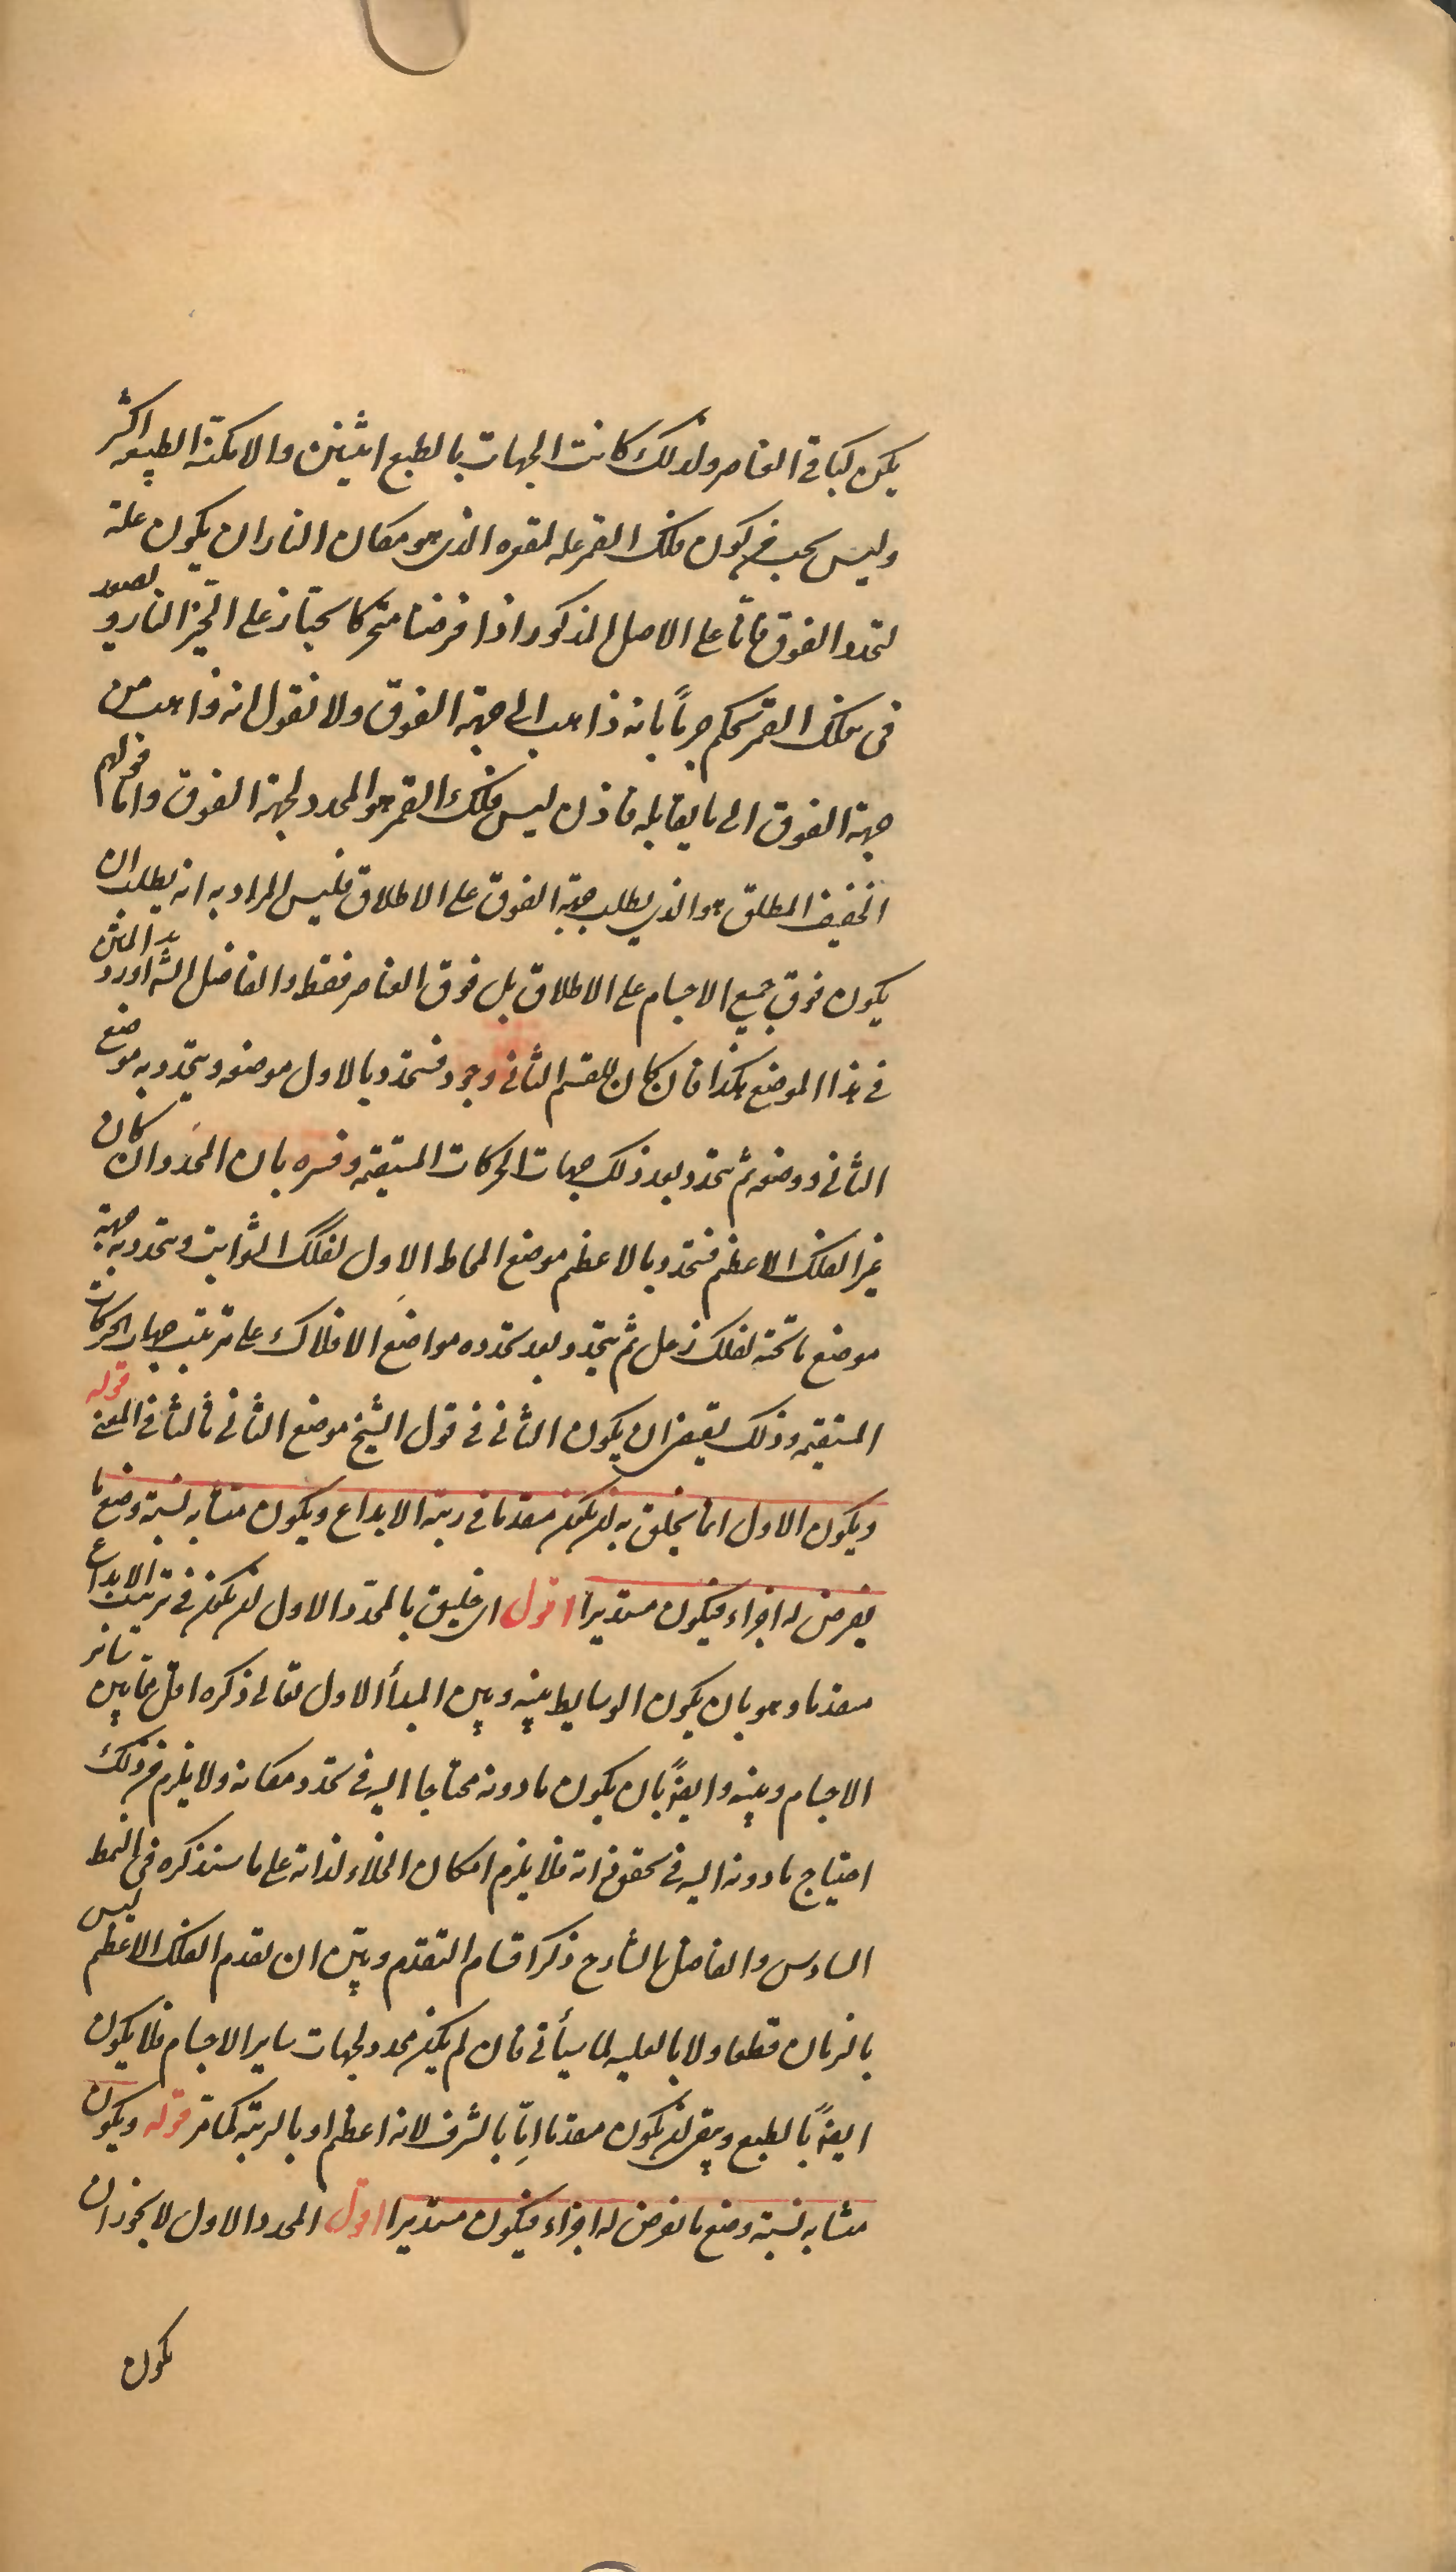 يكون كباقي العناصر ولذلك كانت الجهات بالطبع اثنين والامكنة الطبيعية اكثر
وليس يجب من كون فلك القمر علة لمقعره الذي هو مكان النار ان يكون علة
لتحدد الفوق فانا على الاصل المذكور اذا فرضنا متحركا يجتاز على الحيز الناري و يصعد
في فلك القمر نحكم جزماً بانه ذاهب الى جهة الفوق ولا نقول انه ذاهب من
جهة الفوق الى ما يقابله فاذن ليس فلك القمر هو المحدد لجهة الفوق واما قولهم
الخفيف المطلق هو الذي يطلب جهة الفوق على الاطلاق فليس المراد به انه يطلب ان
يكون فوق جميع الاجسام على الاطلاق بل فوق العناصر فقط والفاضل الشه اورد هذا المتن
في هذا الموضع هكذا فان كان للقسم الثاني وجود فتحدد بالاول موضعه ويتحدد به موضع
الثاني ووضعه ثم يتحدد بعد ذلك جهات الحركات المستقيمة وفسره بان المحدد ان كان
غير الفلك الاعظم فتحدد بالاعظم موضع المحاط الاول لفلك الثوابت ويتحدد به جهة
موضع ما تحته لفلك زحل ثم يتحدد بعد تحدده مواضع الافلاك على ترتيب جهات الحركات
المستقيمة وذلك يقتضي ان يكون الثاني في قول الشيخ موضع الثاني ثالثا في المعنى قوله
ويكون الاول انما يخلق به ان يكون متقدما في رتبة الابداع ويكون متشابه نسبة وضع ما
يفرض له اجزاء فيكون مستديرا اقول اي خليق بالمحدد الاول ان يكون في ترتيب الابداع
متقدما وهو بان يكون الوسايط بينه وبين المبدأ الاول تعالى ذكره اقل مما بين سائر
الاجسام وبينه وايضاً بان يكون ما دونه محتاجا اليه في تحدد مكانه ولا يلزم من ذلك
احتياج ما دونه اليه في تحقق ذاته فلا يلزم امكان الخلاء لذاته على ما سنذكره في النمط
السادس والفاضل الشارح ذكر اقسام التقدم وبين ان تقدم الفلك الاعظم ليس
بالزمان قطعا ولا بالعلية لما سيأتي فان لم يكن محدد لجهات ساير الاجسام فلا يكون
ايضاً بالطبع وبقي ان يكون متقدما اما بالشرف لانه اعظم او بالرتبة كما مر قوله ويكون
متشابه نسبة وضع ما يفرض له اجزاء فيكون مستديرا اقول المحدد الاول لا يجوز ان
يكون